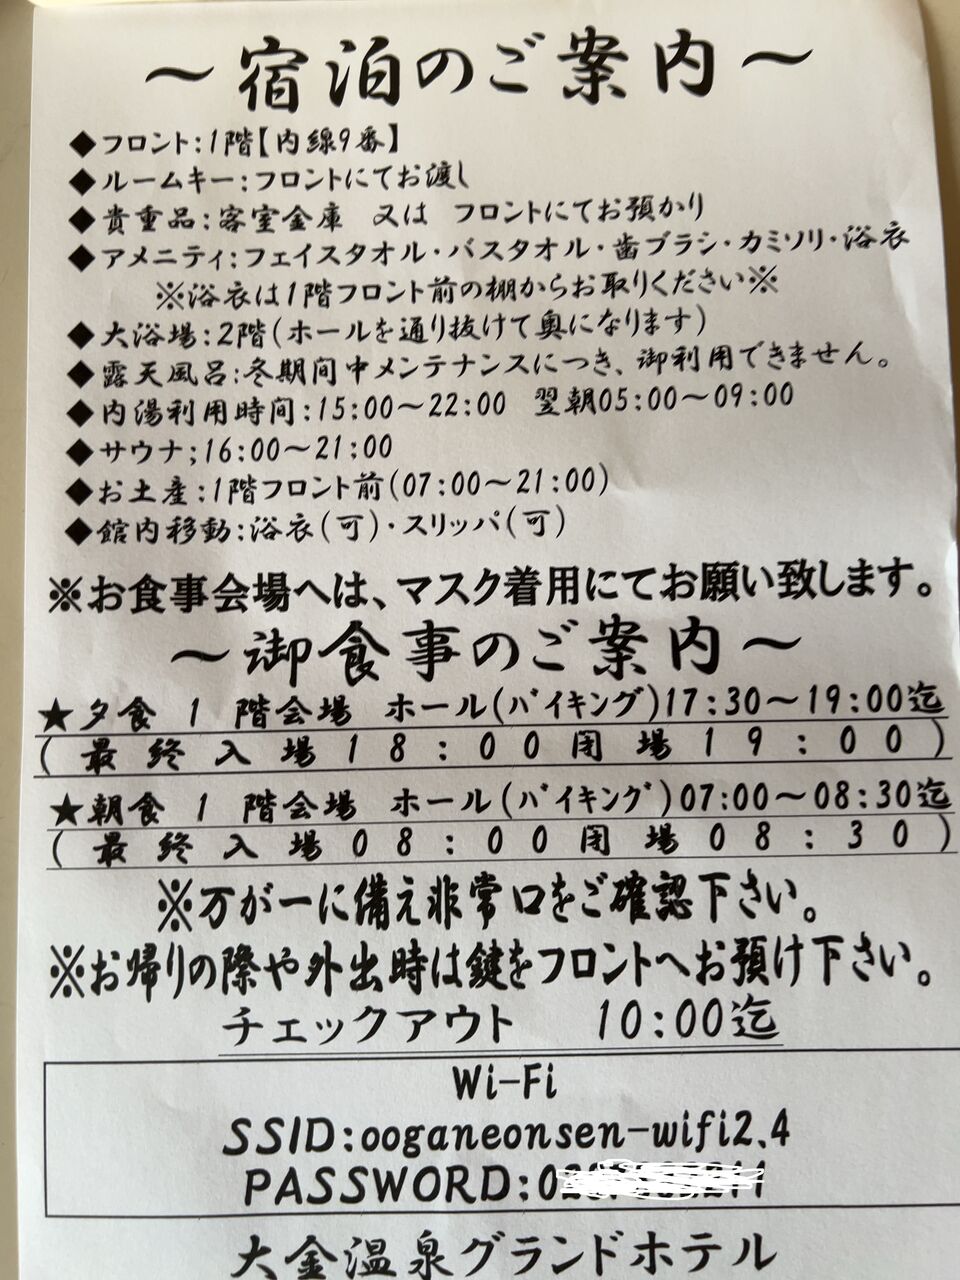 ～宿泊のご案内～
◆フロント:1階【内線9番】
◆ルームキー:フロントにてお渡し
◆貴重品:客室金庫 又は フロントにてお預かり
◆アメニティ:フェイスタオル・バスタオル・歯ブラシ・カミソリ・浴衣
※浴衣は1階フロント前の棚からお取りください※
◆大浴場:2階(ホールを通り抜けて奥になります)
◆露天風呂:冬期間中メンテナンスにつき、御利用できません。
◆内湯利用時間:15:00～22:00 翌朝05:00～09:00
◆サウナ;16:00～21:00
◆お土産:1階フロント前(07:00～21:00)
◆館内移動:浴衣(可)・スリッパ(可)
※お食事会場へは、マスク着用にてお願い致します。
～御食事のご案内～
★夕食 1 階会場 ホール(バイキング)17:30～19:00迄
(最終入場18:00閉場19:00)
★朝食 1 階会場 ホール(バイキング)07:00～08:30迄
(最終入場08:00閉場08:30)
※万が一に備え非常口をご確認下さい。
※お帰りの際や外出時は鍵をフロントへお預け下さい。
チェックアウト 10:00迄
Wi-Fi
SSID:ooganeonsen-wifi2.4
PASSWORD:
大金温泉グランドホテル